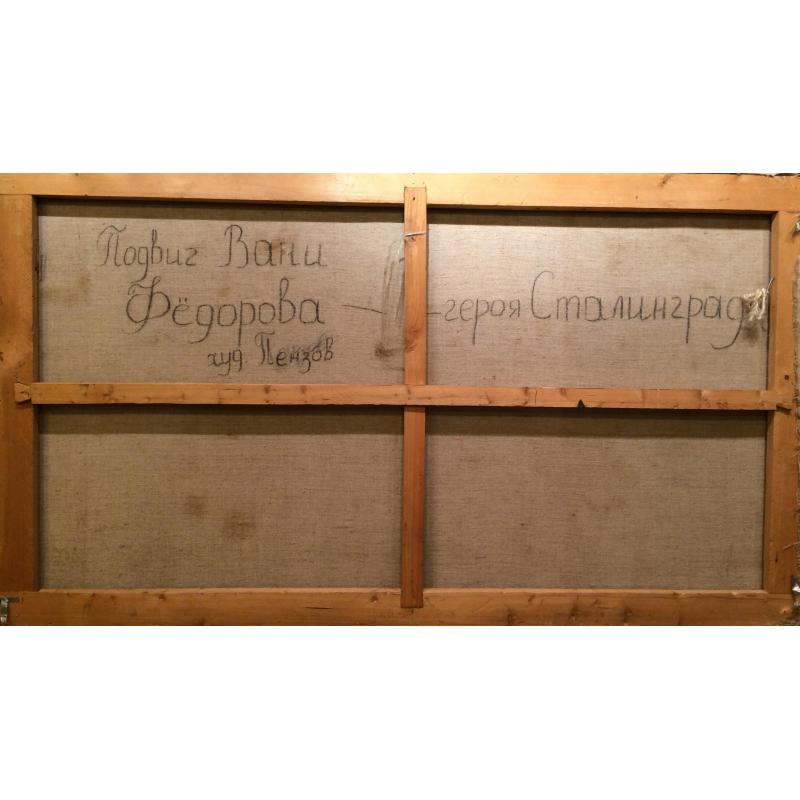 Подвиг Вани
Фёдорова — — героя Сталинграда
худ Пензов